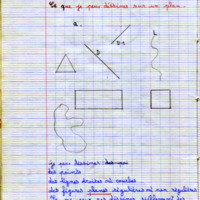 Ce que je peux dessiner sur un plan.
a.
L
D1
D
je peux dessiner
des points
des lignes droites et courbes
des figures planes régulières et non régulières